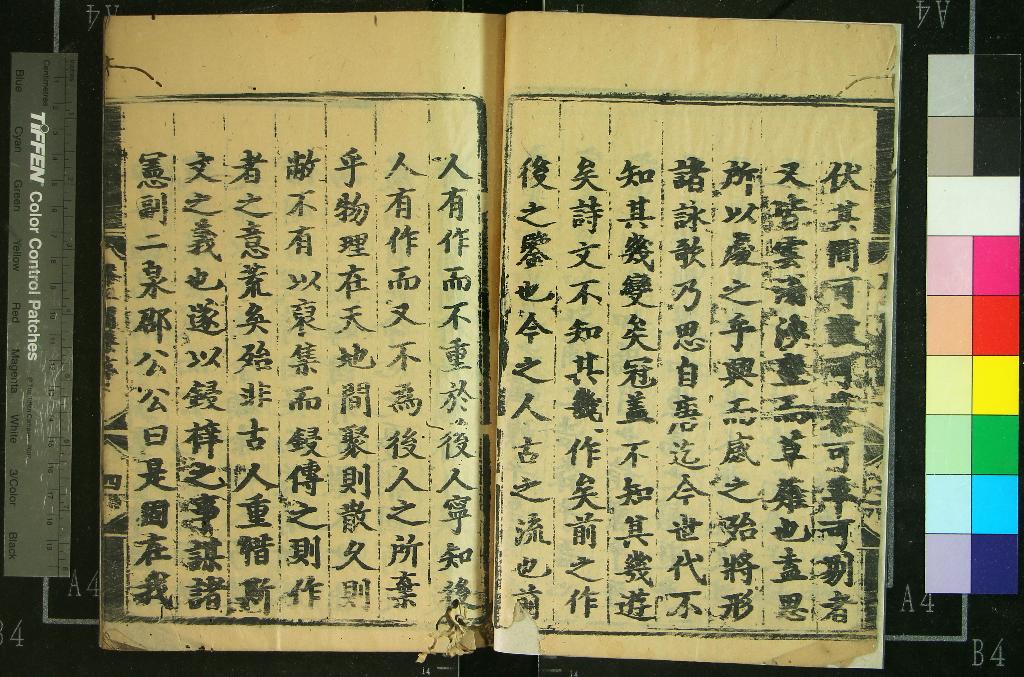 伏其間可畫可棊可章可剟者
又皆雲濤決壅而草離也盍思
所以處之乎興而感之殆將形
諸詠歌乃思自唐迄今世代不
知其幾變矣冠蓋不知其幾遊
矣詩文不知其幾作矣前之作
後之鑒也今之人古之流也前
人有作而不重於後人寧知後
人有作而又不為後人之所棄
乎物理在天地間聚則散久則
敝不有以裒集而鋟傳之則作
者之意荒矣殆非古人重惜斯
文之義也遂以鋟梓之事謀諸
憲副二泉邵公公曰是固在我
四
TIFFEN Color Control Patches
Blue
Cyan
Green
Yellow
Red
Magenta
White
3/Color
Black
Centimetres
A4
A4
A4
A4
B4
B4